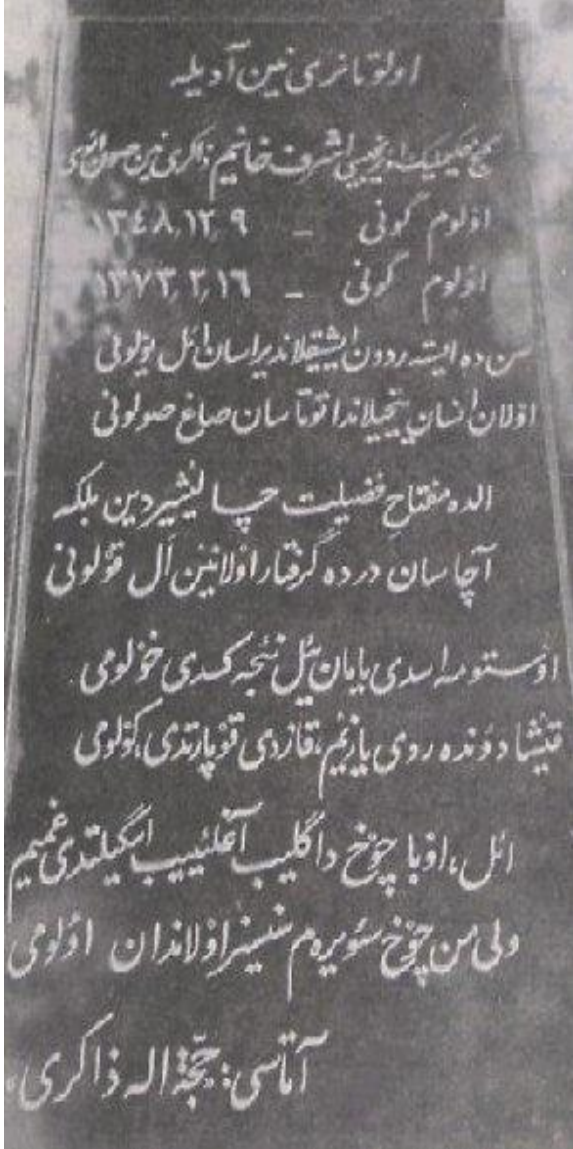 اولو تانری نین آدیله
اشرف خانیم ذاکری نین
اؤلوم گونی - ۱۳۴۸،۱۲،۹
اؤلوم گونی - ۱۳۷۳،۲،۱۶
سن ده ایسته ردون ایشیقلاندیراسان ائل یولونی
اولان انسان یئخیلاندا توتاسان صاغ صولونی
الده مفتاح فضیلت چالیشیردین بلکه
آچاسان درده گرفتار اولانین ال قولونی
اوستومه اسدی یامان یئل نئجه کسدی خولومی
قیشا دؤنده روی یازیم، قازدی قوپارتدی، کولومی
ائل، اوبا چوخ دا گلیب آغلییب ایگیلتدی غمیم
ولی من چوخ سئویرم سنسیز اولاندان اؤلومی
آتاسی: حجّة اله ذاکری،